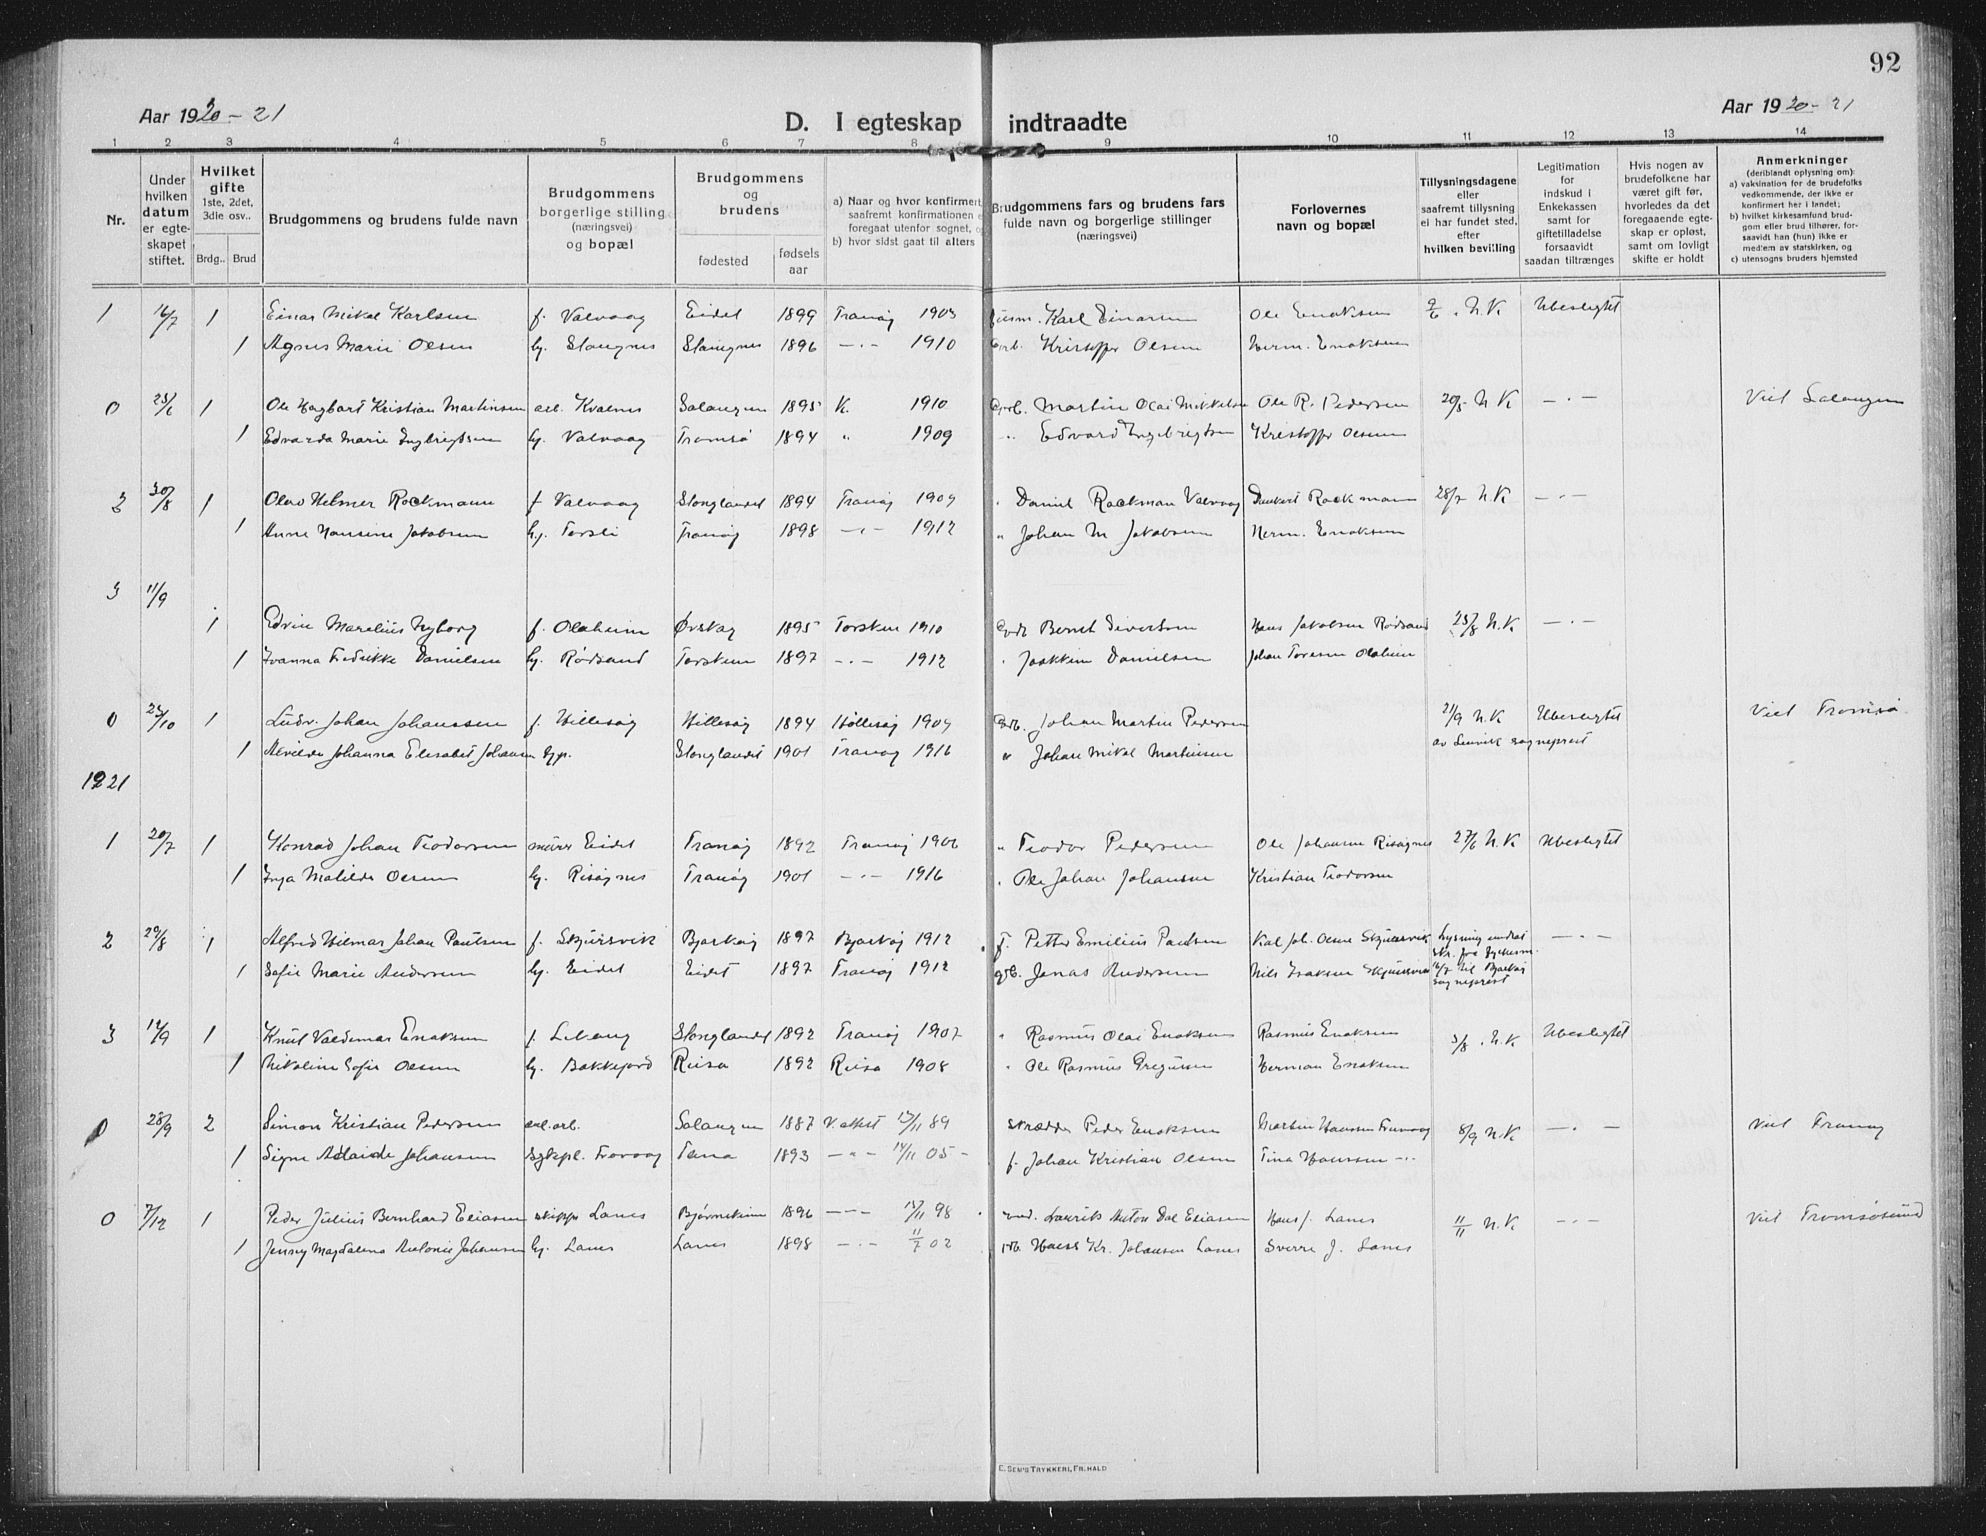 92
Aar 1920-21
D. I egteskap indtraadte
Aar 1920-21
1 2 3 4 5 6 7 8 9 10 11 12 13 14
Nr.
Under hvilken datum er egteskapet stiftet.
Hvilket gifte 1ste, 2det, 3die osv..
Brdg.. Brud
Brudgommens og brudens fulde navn
Brudgommens borgerlige stilling (næringsvei) og bopæl
Brudgommens og brudens
fødested
fødselsaar
a) Naar og hvor konfirmert, saafremt konfirmationen e foregaat utenfor sognet, o
b) hvor sidst gaat til alters
Brudgommens fars og brudens fars fulde navn og borgerlige stillinger (næringsvei)
Forlovernes navn og bopæl
Tillysningsdagene eller saafremt tillysning ei har fundet sted, efter hvilken bevilling
Legitimation for indskud i Enkekassen samt for giftetilladelse forsaavidt saadan tiltrænges
Hvis nogen av brudefolkene har været gift før, hvorledes da det foregaaende egteskap er opløst, samt om lovligt skifte er holdt
Anmerkninger (deriblandt oplysning om):
a) vaksination for de brudefolks vedkommende, der ikke er konfirmert her i landet;
b) hvilket kirkesamfund brudgom eller brud tilhører, forsaavidt han (hun) ikke er medlem av statskirken, og
c) utensogns bruders hjemsted
1 16/7 1 Einar Mikal Karlsen f. Valvaag Eidet 1899 Tranøy 1903 fusm. Karl Einarsen Ole Enoksen 9/6 . N.K Ubeslegtet
1 Agnes Marie Olsen hj. Stangnes Stangnes 1896 -"- 1910 Grb. Kristoffer Olsen Herm. Enoksen
0 23/6 1 Ole Hagbart Kristian Martinsen arb. Kvalnes Salangen 1895 K. 1910 Grb. Martin Olai Mikkelsen Ole R. Pedersen 20/5 N K -"- Viet Salangen
1 Edvarda Marie Ingbrigtsen hj. Valvaag Tromsø 1894 " 1909 " Edvard Ingebrigtsen Kristoffer Olsen
2 30/8 1 Olav Helmer Rockmann f Valvaag Stonglandet 1894 Tranøy 1909 " Daniel Rockman Valvaag Dankert Rockmann 28/7 N.K -"-
1 Anne Hansine Jakobsen hj. Torsli Tranøy 1898 -"- 1912 " Johan M Jakobsen Herm. Enoksen
3 11/9
1 Edvin Marelius Nyborg f. Olaheim Ørskog 1895 Torsken 1910 Grb Bernt Sivertsen Hans Jakobsen Rødsand 23/8 N.K -"-
1 Ivanna Fredrikke Danielsen hj. Rødsand Torsken 1897 -"- 1912 " Joakkim Danielsen Johan Toresen Olaheim
0 23/10 1 Ludv. Johan Johanssen f. Hillesøy Hillesøy 1894 Hillesøy 1909 Grb. Johan Martin Pedersen 21/9 N.K Ubeslegtet Viet Tromsø
1 Alvilde Johanna Elisabet Johansen Stonglandet 1901 Tranøy 1916 " Johan Mikal Martinsen av Lenvik sogneprest
1921
1 20/7 1 Konrad Johan Teodorsen murer Eidet Tranøy 1892 Tranøy 1906 " Teodor Pedersen Ole Johansen Risøgnes 27/6 N.K Ubeslegtet
1 Inga Matilde Olsen hj. Risøgnes Tranøy 1901 -"- 1916 " Ole Johan Johansen Kristian Teodorsen
2 29/8 1 Alfred Hilmar Johan Paulsen f. Skjursvik Bjarkøy 1897 Bjarkøy 1912 f. Petter Emilius Paulsen Kal Joh. Olsen Skjursvik Lysning
1 Sofie Marie Andersen hj. Eidet Eidet 1897 Tranøy 1912 grb. Jonas Andersen Nils Isaksen Skjursvik til Bjarkøy sogneprest -"-
3 14/9 1 Knut Valdemar Enoksen f. Stonglandet 1892 Tranøy 1907 " Rasmus Olai Enoksen Rasmus Enoksen 3/8 . N.K Ubeslegtet
1 Nikoline Sofie Olsen hj. Bakkejord Reisa 1892 Reisa 1908 " Ole Rasmus Gregusen Herman Enoksen
0 28/9 2 Simon Kristian Pedersen Salangen 1887 V. attest 89 skrædder Peder Enoksen Martin Hanssen 8/9 N.K -"- Viet Tranøy
1 Signe Adlaide Johansen Tana 1893 -"- 05 f. Johan Kristian Olsen Tina Hanssen -"-
0 7/12 1 Peder Julius Bernhard Eliasen skipper Lanes 1896 -"- 98 Laurits Anton Dal Eliasen Hans J. Lanes 11/11 N.K -"- Viet Tromsøsund
1 Jenny Magdalena Antonie Johansen hj. Lanes Lanes 1898 -"- 11/7 02 Hans Kr. Johansen Lanes Sverre J. Lanes
E. SEM'S TRYKKERI, FR.HALD